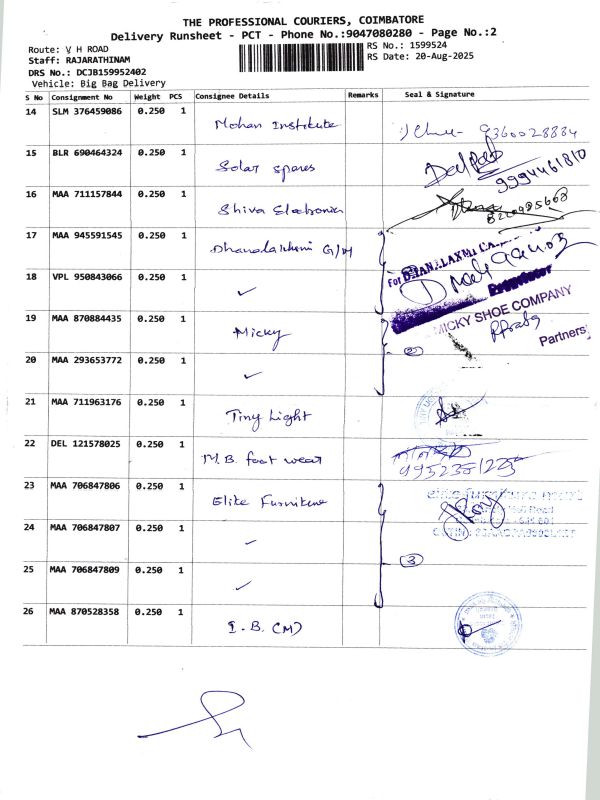 THE PROFESSIONAL COURIERS, COIMBATORE
Delivery Runsheet - PCT - Phone No.:9047080280 - Page No.:2
Route: V H ROAD
RS No.: 1599524
Staff: RAJARATHINAM
RS Date: 20-Aug-2025
DRS No.: DCJB159952402
Vehicle: Big Bag Delivery
S No Consignment No Weight PCS Consignee Details Remarks Seal & Signature
14 SLM 376459086 0.250 1 Mohan Institute 9360028884
15 BLR 690464324 0.250 1 Solar spares 9994461810
16 MAA 711157844 0.250 1 Shiva Electronics
17 MAA 945591545 0.250 1 Dhanalakshmi G/M
For DHANALAXMI
18 VPL 950843066 0.250 1 ✓
19 MAA 870884435 0.250 1 Micky
MICKY SHOE COMPANY
Partners
20 MAA 293653772 0.250 1 ✓ 2
21 MAA 711963176 0.250 1 Tiny Light
22 DEL 121578025 0.250 1 M.B. foot wear
23 MAA 706847806 0.250 1 Elite Furniture
24 MAA 706847807 0.250 1 ✓
25 MAA 706847809 0.250 1 ✓ 3
26 MAA 870528358 0.250 1 I.B. (M)